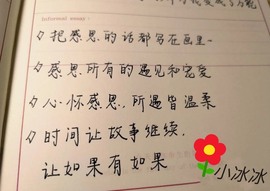 Informal essay:
把感恩的话都写在画里~
感恩所有的遇见和宠爱
心怀感恩.所遇皆温柔
时间让故事继续.
让如果有如果
小冰冰